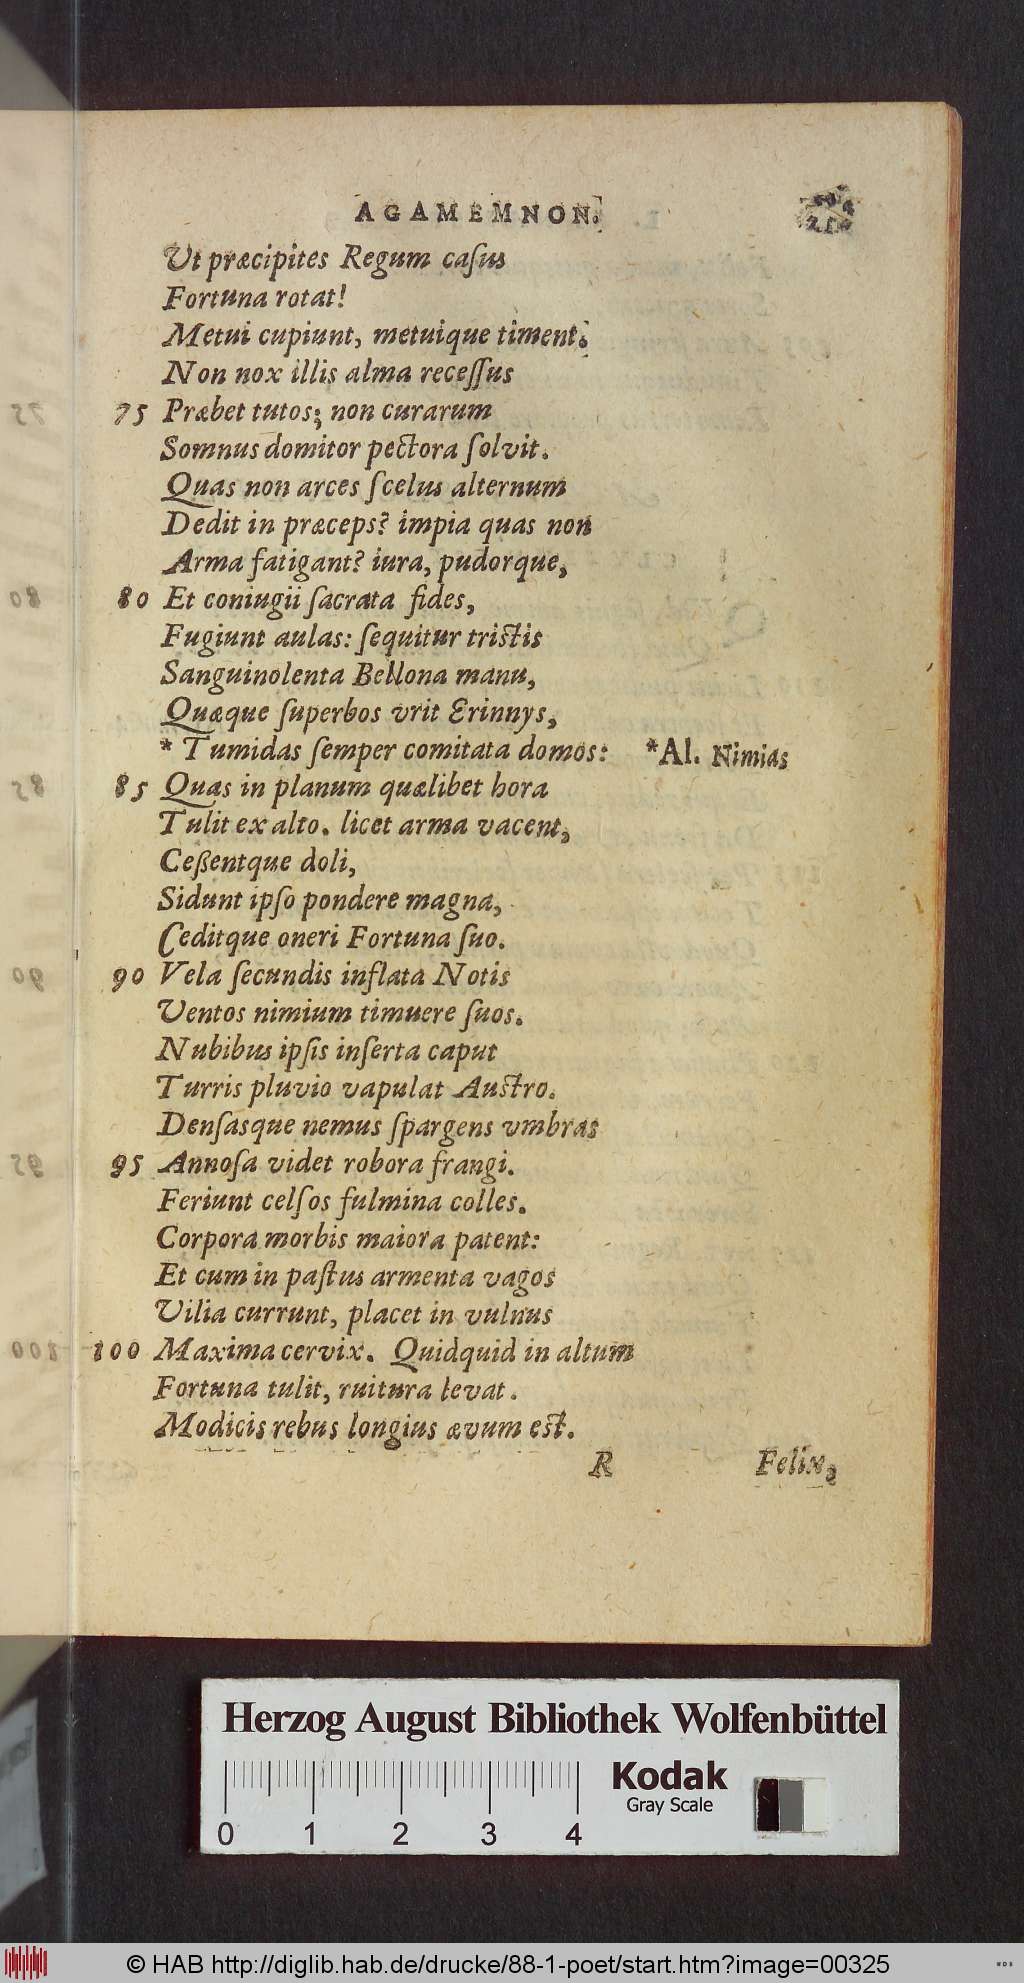 AGAMEMNON.
Ut præcipites Regum caſus
Fortuna rotat!
Metui cupiunt, metuique timent.
Non nox illis alma receſſus
75 Præbet tutos; non curarum
Somnus domitor pectora ſolvit.
Quas non arces ſcelus alternum
Dedit in præceps? impia quas non
Arma fatigant? iura, pudorque,
80 Et coniugii ſacrata fides,
Fugiunt aulas: ſequitur triſtis
Sanguinolenta Bellona manu,
Quæque ſuperbos vrit Erinnys,
* Tumidas ſemper comitata domos: *Al. Nimias
85 Quas in planum quælibet hora
Tulit ex alto. licet arma vacent,
Ceßentque doli,
Sidunt ipſo pondere magna,
Ceditque oneri Fortuna ſuo.
90 Vela ſecundis inflata Notis
Ventos nimium timuere ſuos.
Nubibus ipſis inſerta caput
Turris pluvio vapulat Auſtro.
Denſasque nemus ſpargens vmbras
95 Annoſa videt robora frangi.
Feriunt celſos fulmina colles.
Corpora morbis maiora patent:
Et cum in paſtus armenta vagos
Vilia currunt, placet in vulnus
100 Maxima cervix. Quidquid in altum
Fortuna tulit, ruitura levat.
Modicis rebus longius ævum eſt.
R Felix,
Herzog August Bibliothek Wolfenbüttel
Kodak
Gray Scale
0 1 2 3 4
© HAB http://diglib.hab.de/drucke/88-1-poet/start.htm?image=00325